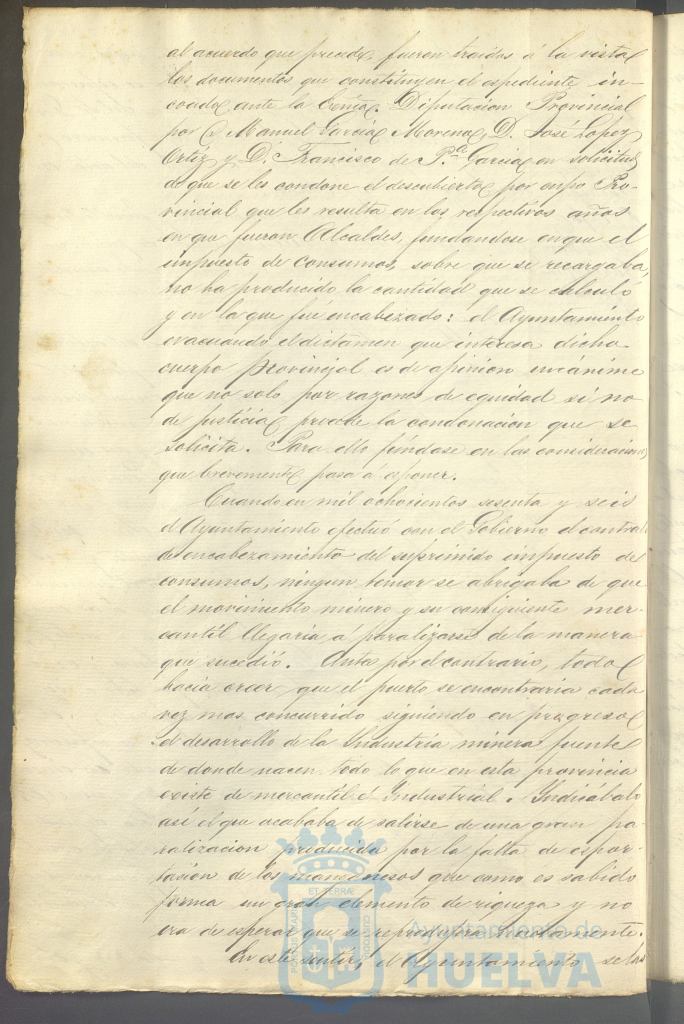 al acuerdo que precede, fueron traidos á la vista
los documentos que constituyen el espediente in-
coado ante la Exma. Diputacion Provincial
por D. Manuel Garcia Moreno, D. José Lopez
Ortiz y D. Francisco de P.ª Garcia en solicitud
de que se les condone el descubierto por cupo Pro-
vincial que les resulta en los respectivos años
en que fueron Alcaldes, fundandose en que el
impuesto de consumos, sobre que se recargaba,
no ha producido la cantidad que se calculó
y en la que fué encabezado: el Ayuntamiento
evacuando el dictamen que interesa dicho
cuerpo provincial es de opinion unánime
que no solo por razones de equidad si no
de justicia procede la condonacion que se
solicita. Para ello fúndase en las consideraciones
que brevemente pasa á esponer.
Cuando en mil ochocientos sesenta y seis
el Ayuntamiento efectuó con el Gobierno el contrato
de encabezamiento del suprimido impuesto de
consumos, ningun temor se abrigaba de que
el movimiento minero y su consiguiente mer-
cantil llegaria á paralizarse de la manera
que sucedió. Antes por el contrario, todo
hacia creer que el puerto se encontraria cada
vez mas concurrido siguiendo en progreso
el desarrollo de la Industria minera fuente
de donde nacen todo lo que en esta provincia
existe de mercantil é Industrial. Indicábalo
asi el que acababa de salirse de una gran pa-
ralizacion producida por la falta de espor-
tasion de los manganesos que como es sabido
forma un gran elemento de riqueza y no
era de esperar que se reprodujera nuevamente.
En este sentir, el Ayuntamiento se las
Ayuntamiento de
HUELVA